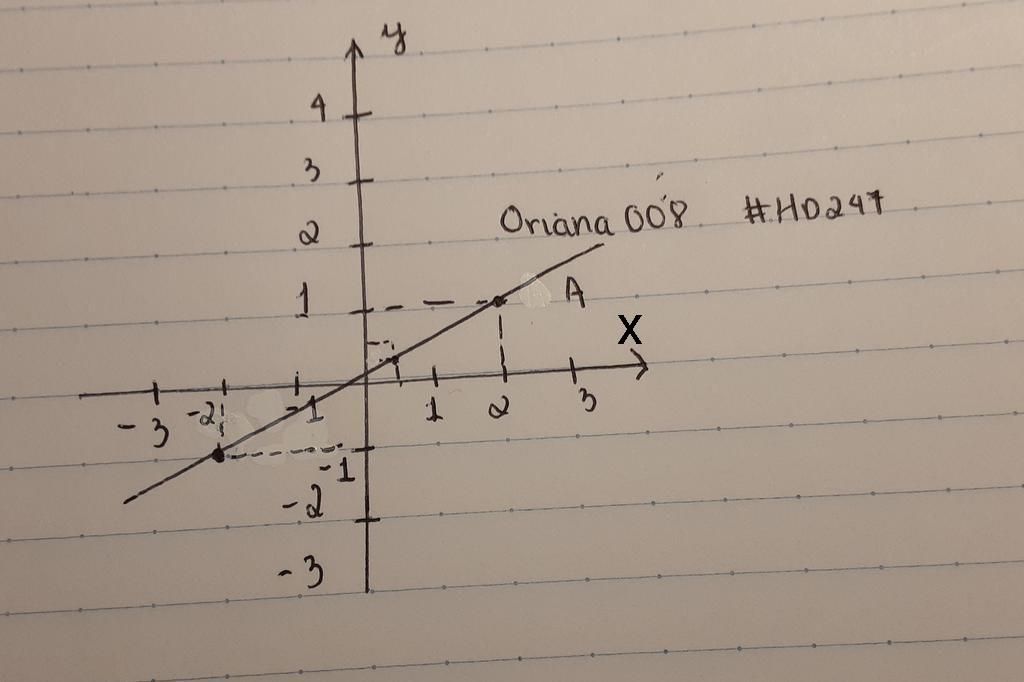 y
4
3
Oriana 008 #HD247
2
1
A
X
-3 -2 -1 1 2 3
-1
-2
-3